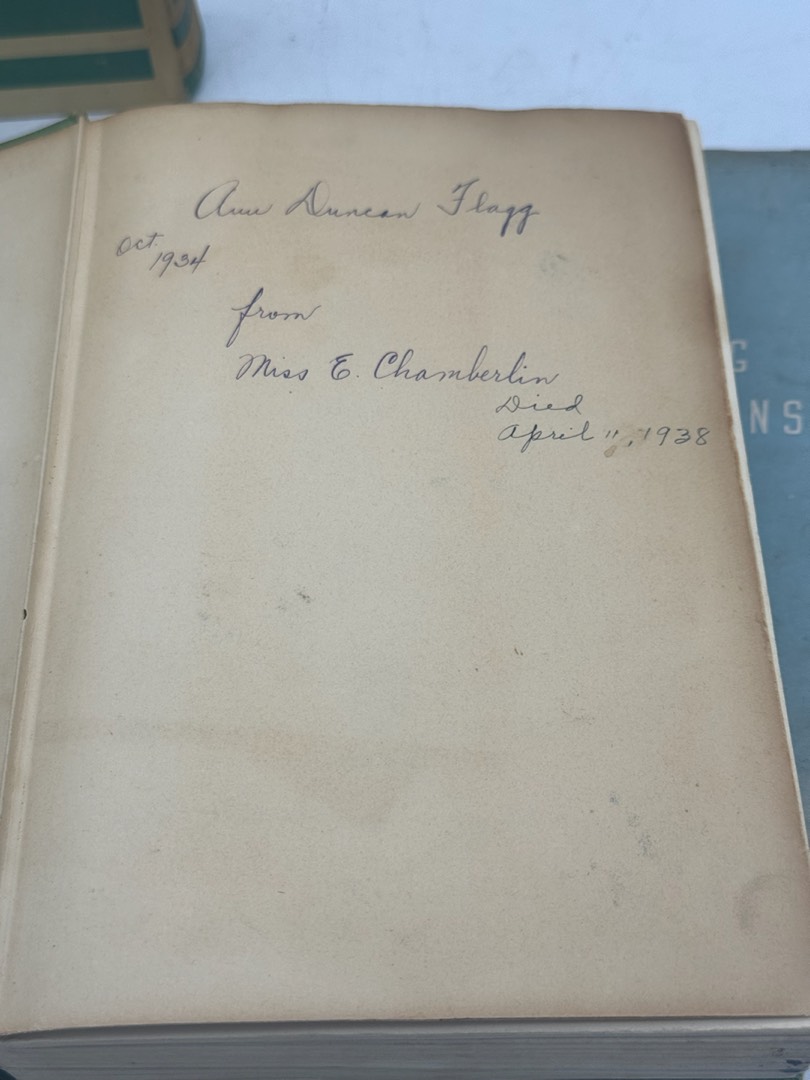 Ann Duncan Flagg
Oct.
1934
from
Miss E. Chamberlin
Died
April 11, 1938
G
NS